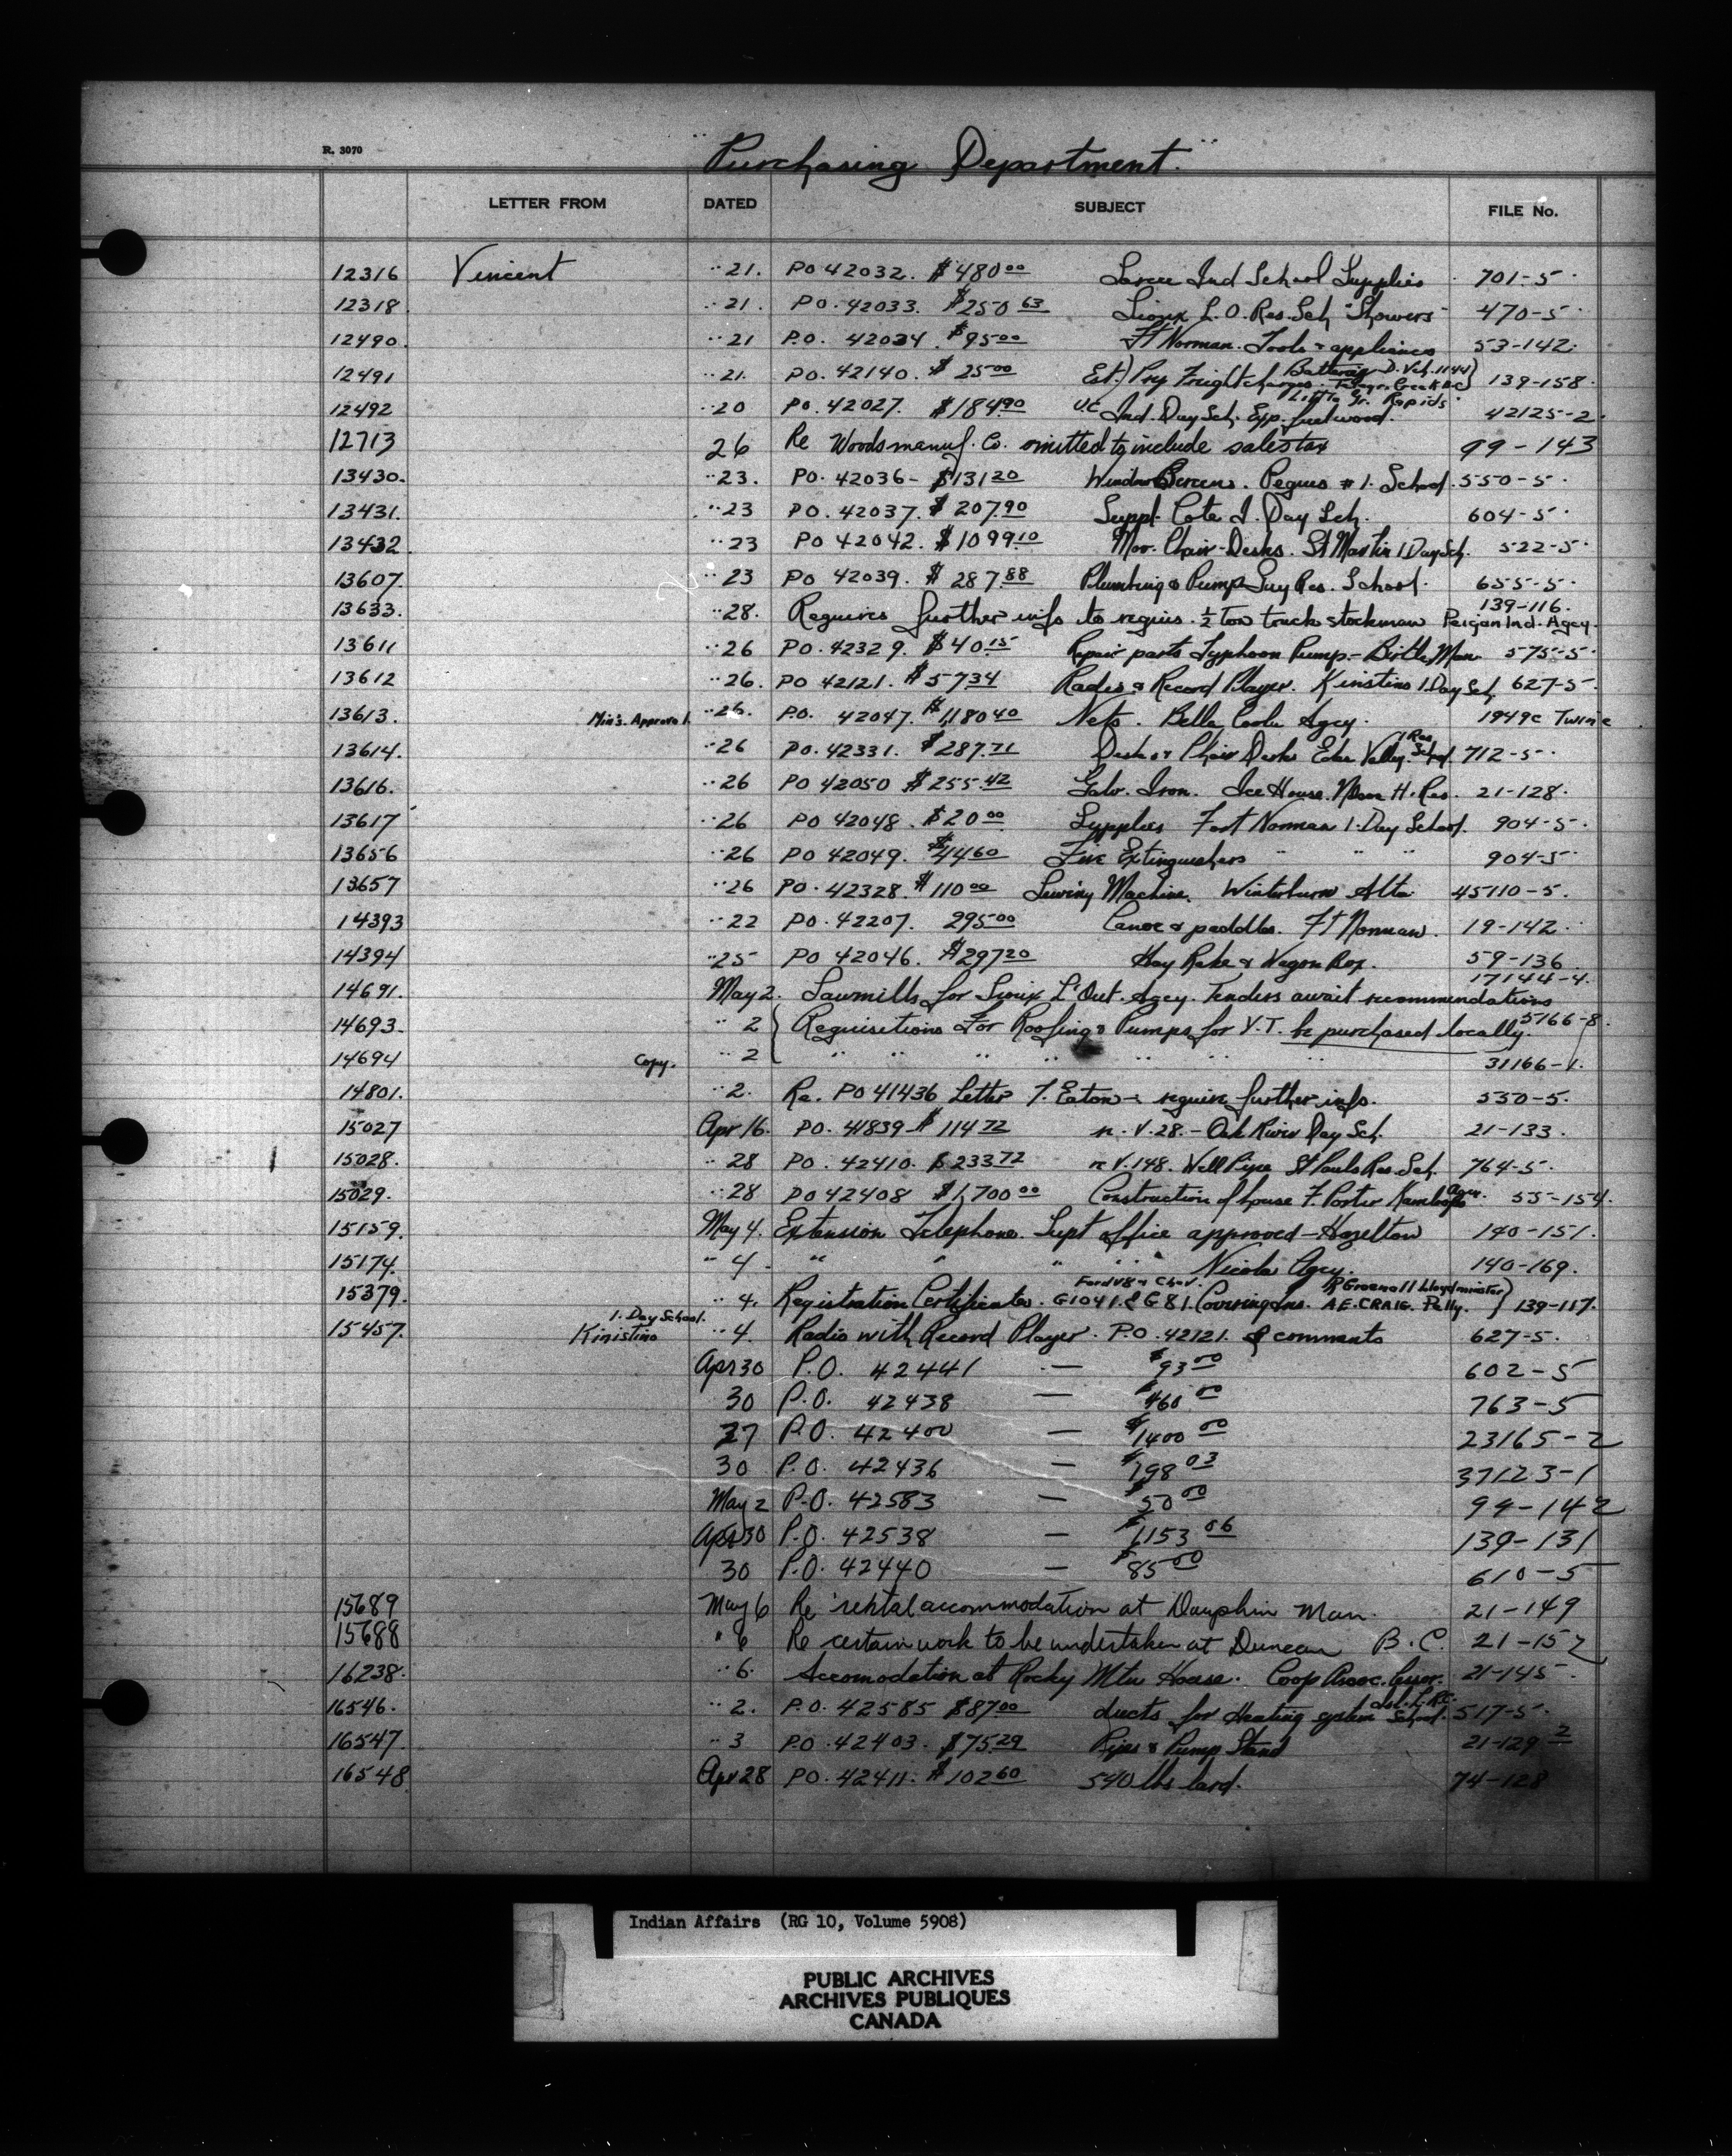 R. 3070
"Purchasing Department."
LETTER FROM DATED SUBJECT FILE No.
12316 Vincent " 21. PO 42032. $480 00 Sarcee Ind School Supplies 701-5
12318 " 21. PO. 42033. $250 63 Sioux L.O. Res. Sch "Showers" 470-5
12490. " 21 P.O. 42034. $95 00 Ft Norman. Tools & appliances 53-142.
12491 " 21. PO. 42140. $ 25 00 Est.) Pry Freight charges. D. Veh. 1144) 139-158.
12492 " 20 PO. 42027. $184 90 Ind. Day Sch. Exp. fuelwood. Little Gr. Rapids 42125-2.
12713 26 Re Woods manuf. Co. omitted to include sales tax 99-143
13430. " 23. PO. 42036- $131 20 Window Screens. Peguis #1. School. 550-5.
13431. " 23 PO. 42037. $ 207.90 Suppl. Cote I. Day Sch. 604-5
13432. " 23 PO 42042. $1099.10 Mov. Chair-Desks. St Martin I Day Sch. 522-5
13607. " 23 PO 42039. $ 287.88 Plumbing & Pump Guy Res. School. 655-5
13633. " 28. Requires further info to requis. ½ Ton truck stockman Peigan Ind. Agcy. 139-116.
13611 " 26 PO. 42329. $40.15 Repair parts Typhoon Pump.- Birtle, Man 575-5
13612 " 26. PO 42121. $57 34 Radio & Record Player. Kinistino I.Day Sch. 627-5.
13613. Min's. Approval. " 26. P.O. 42047. $1,180 40 Nets. Bella Coola Agcy. 1949c Twine
13614. " 26 PO. 42331. $287.71 Desk & Chair Desks Eden Valley. I Res. School. 712-5
13616. " 26 PO 42050 $255.42 Galv. Iron. Ice House. Nelson H. Res. 21-128.
13617 " 26 PO 42048. $20 00 Supplies Fort Norman I. Day School. 904-5
13656 " 26 PO 42049. $44 60 Fire Extinguishers " " " 904-5
13657 " 26 PO. 42328. $110 00 Sewing Machine. Winterburn Alta. 45110-5.
14393 " 22 PO. 42207. 295 00 Canoe & paddles. Ft Norman. 19-142.
14394 " 25 PO 42046. $297 20 Hay Rake & Wagon Box. 59-136
14691. May 2. Sawmills for Sioux L'Out. Agcy. Tenders await recommendations 17144-4.
14693. " 2 { Requisitions For Roofing & Pumps for Y.T. be purchased locally. 5166-8.
14694 Copy. " 2 " " " " " " " 31166-1.
14801. " 2. Re. PO 41436 Letter T. Eaton - require further info. 530-5.
15027 Apr 16. PO. 41839 - $ 114 72 re. V. 28. - Oak River Day Sch. 21-133.
15028. " 28 PO. 42410. $ 233 72 re V. 148. Well Pipe St Pauls Res. Sch. 764-5.
15029. " 28 PO 42408 $1,700 00 Construction of house F. Porter Kamloops Agcy. 55-154.
15159. May 4. Extension Telephone. Supt office approved - Hazelton 140-151.
15174. " 4. " " " " " Nicola Agcy. 140-169.
15379. " 4. Registration Certificates. Ford V8 & Chev. G1041. & G81. Covering Ins. R Greenall Lloydminster) A.E. CRAIG. Pelly. } 139-117.
15457. Kinistino I. Day School. " 4. Radio with Record Player. P.O. 42121. & comments 627-5.
Apr 30 P.O. 42441 — $93 00 602-5
30 P.O. 42438 — $460 00 763-5
27 P.O. 42400 — $1400 00 23165-2
30 P.O. 42436 — $198 03 37123-1
May 2 P.O. 42583 — $50 00 94-142
Apr 30 P.O. 42538 — $1153 06 139-131
30 P.O. 42440 — $85 00 610-5
15689 May 6 Re rental accommodation at Dauphin Man. 21-149
15688 " 6 Re certain work to be undertaken at Duncan B.C. 21-152
16238. " 6. Accomodation at Rocky Mtn House. Coop Assoc. 21-145.
16546. " 2. P.O. 42585 $87 00 ducts for Heating system School. 517-5.
16547. " 3 P.O. 42403. $75.29 Pipes & Pump Stand 21-129 2
16548 Apr 28 PO. 42411. $102 60 540 lbs lard. 74-128
Indian Affairs (RG 10, Volume 5908)
PUBLIC ARCHIVES
ARCHIVES PUBLIQUES
CANADA